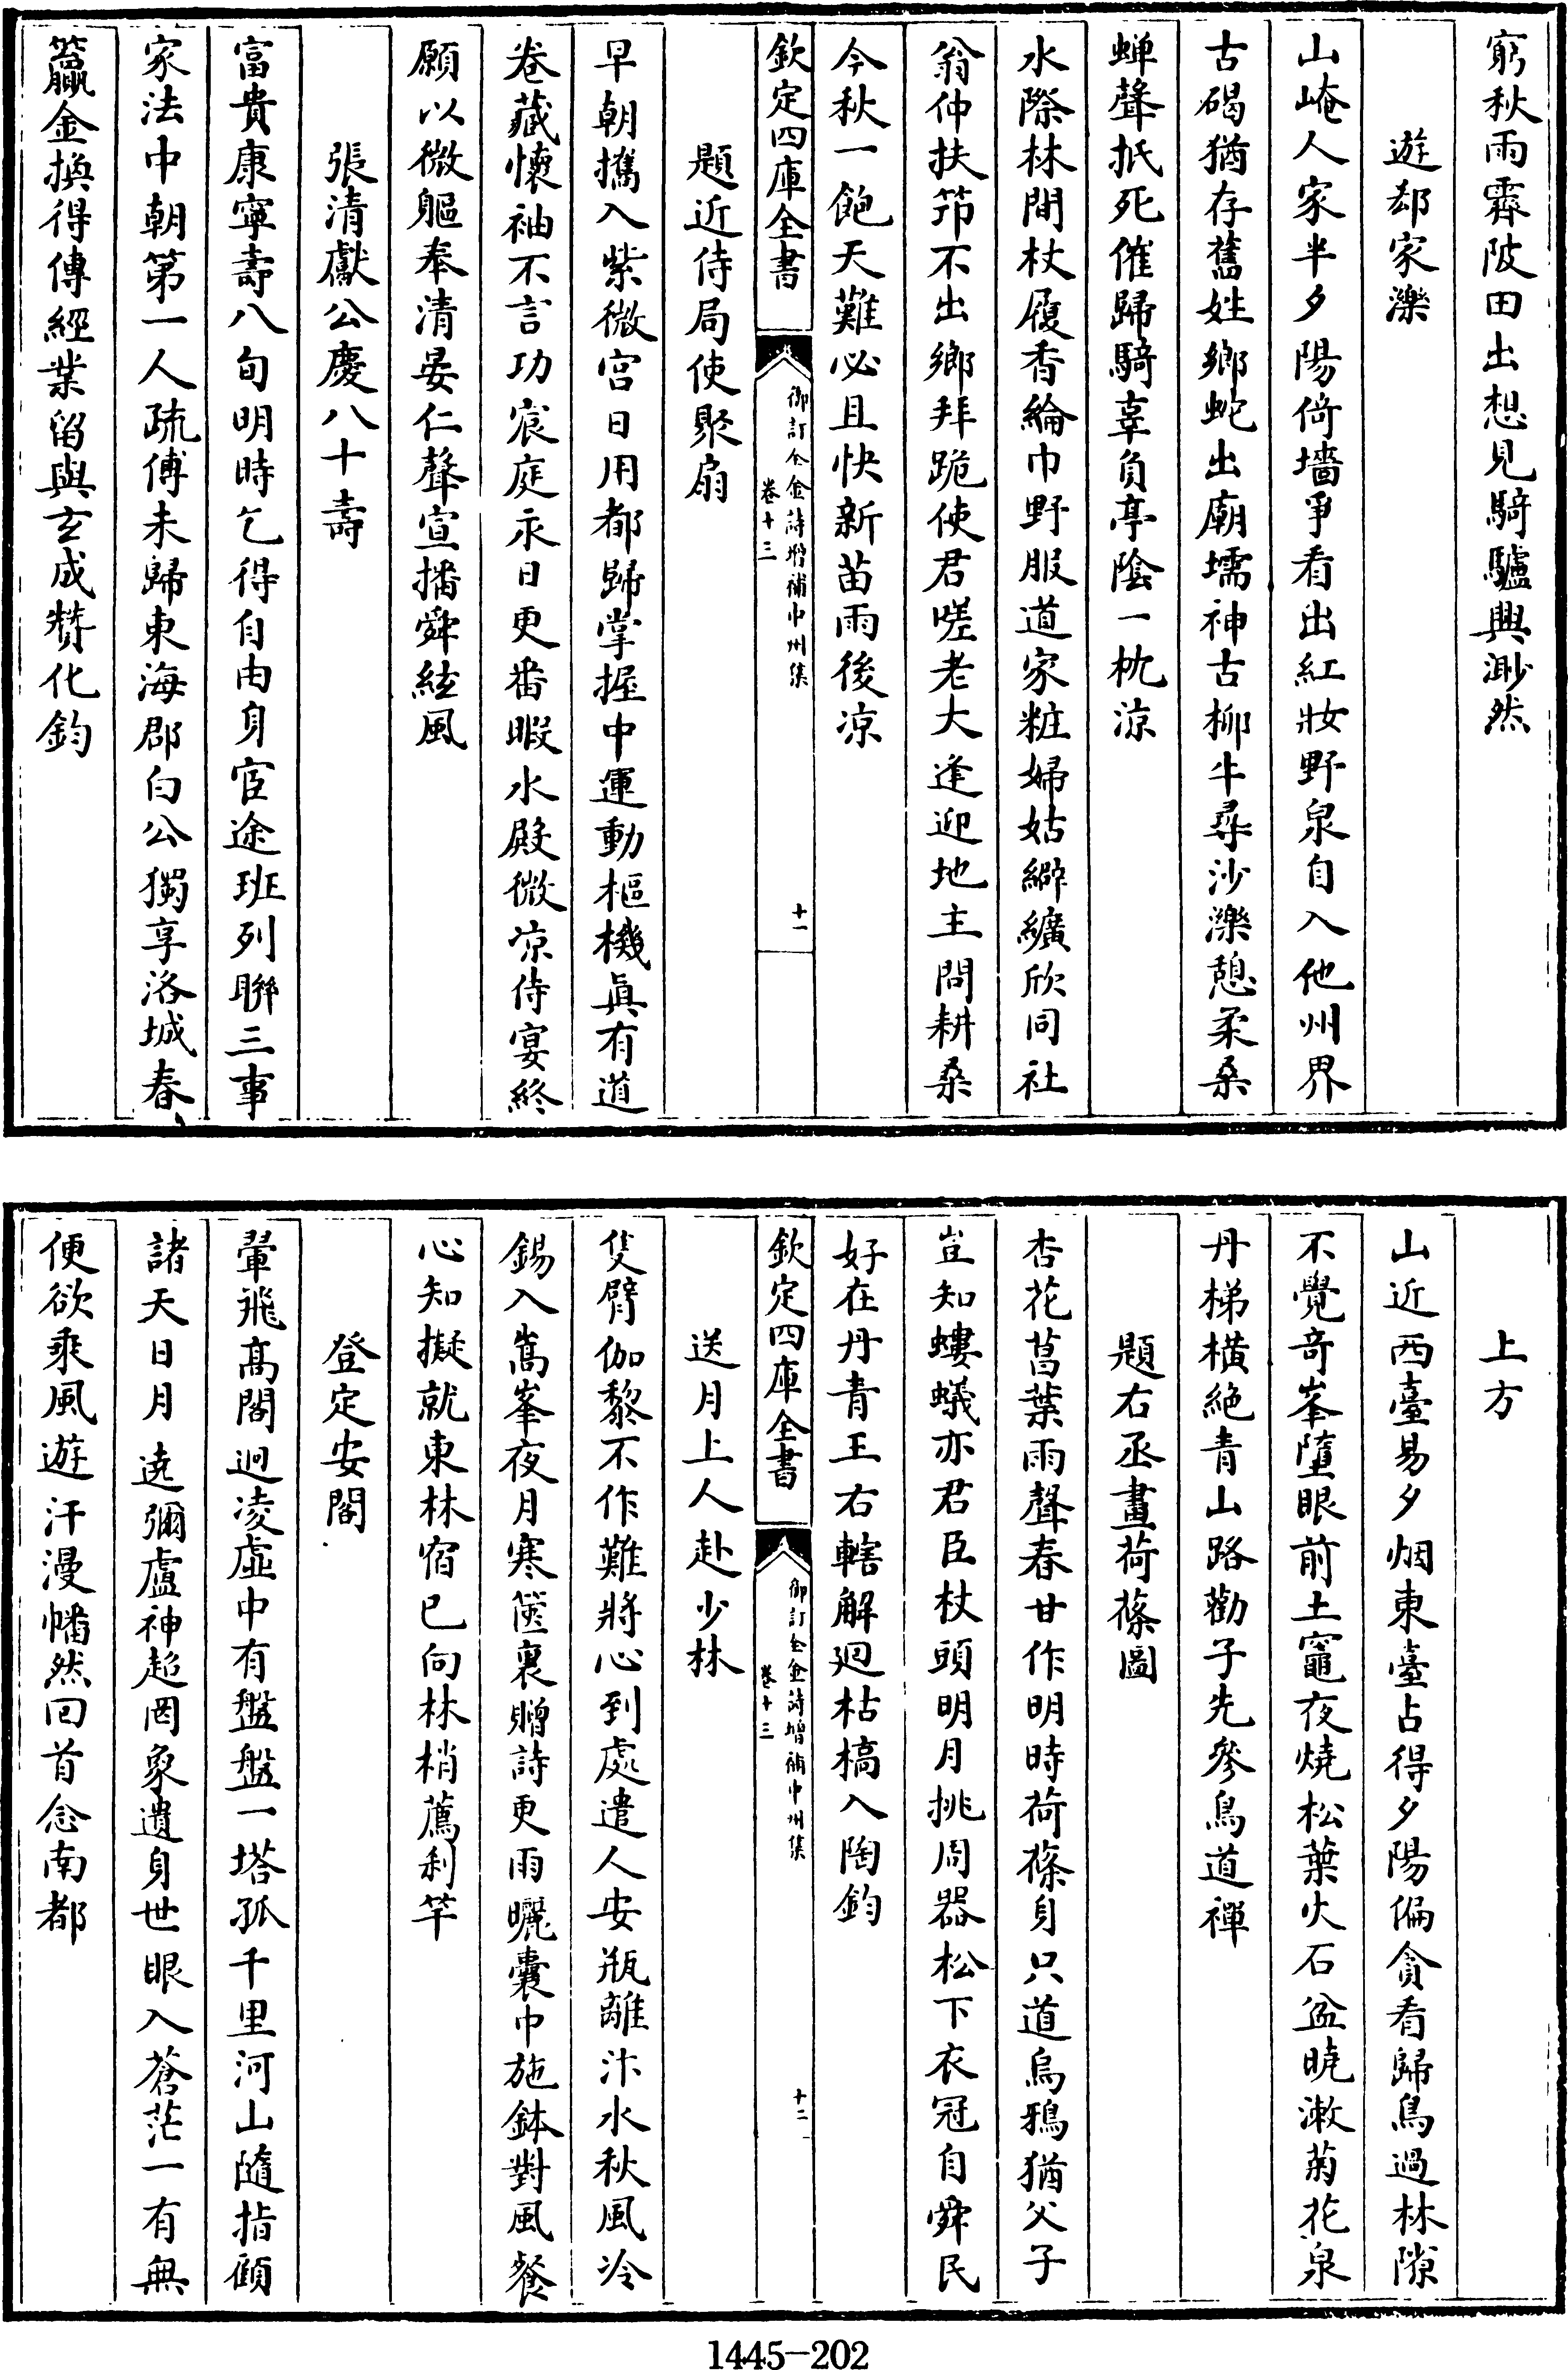 窮秋雨霽陂田出想見騎驢興渺然
遊郄家濼
山崦人家半夕陽倚墻爭看出紅妝野泉自入他州界
古碣猶存舊姓鄉蛇出廟壖神古柳牛尋沙濼憩柔桑
蟬聲抵死催歸騎辜負亭陰一枕涼
水際林間杖履香綸巾野服道家粧婦姑緶纊欣同社
翁仲扶筇不出鄉拜跪使君嗟老大逢迎地主問耕桑
今秋一飽天難必且快新苗雨後涼
欽定四庫全書
御訂全金詩增補中州集
卷十三
十一
題近侍局使聚扇
早朝攜入紫微宫日用都歸掌握中運動樞機眞有道
卷藏懷袖不言功宸庭永日更番暇水殿微凉侍宴終
願以微軀奉清晏仁聲宣播舜絃風
張清獻公慶八十壽
富貴康寧壽八旬明時乞得自由身宦途班列聯三事
家法中朝第一人疏傅未歸東海郡白公獨享洛城春
籯金換得傳經業留與玄成贊化鈞
上方
山近西臺易夕烟東臺占得夕陽偏貪看歸鳥過林隙
不覺奇峯墮眼前土竈夜燒松葉火石盆曉漱菊花泉
丹梯橫絶青山路勸子先參鳥道禪
題右丞畫荷蓧圖
杏花菖葉雨聲春甘作明時荷蓧身只道烏鴉猶父子
豈知螻蟻亦君臣杖頭明月挑周器松下衣冠自舜民
好在丹青王右轄解廻枯槁入陶鈞
欽定四庫全書
御訂全金詩增補中州集
卷十三
十二
送月上人赴少林
隻臂伽黎不作難將心到處遣人安瓶離汴水秋風冷
錫入嵩峯夜月寒篋裏贈詩更雨曬囊中施鉢對風餐
心知擬就東林宿已向林梢薦利竿
登定安閣
翬飛高閣迥凌虛中有盤盤一塔孤千里河山隨指顧
諸天日月遶彌盧神超罔象遺身世眼入蒼茫一有無
便欲乘風遊汗漫幡然回首念南都
1445-202